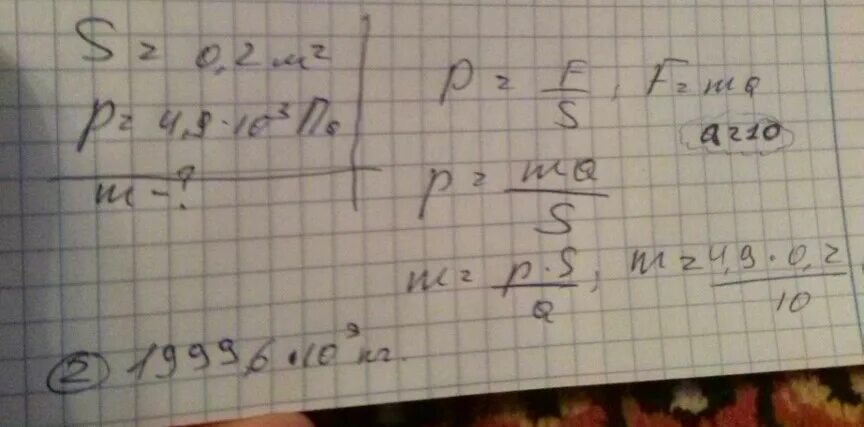 S = 0,2 м²
p = 4,9·10³ Па
m - ?
p = F/S, F = ma
a=10
p = ma/S
m = p·S/a, m = 4,9·0,2/10
② 19996·10⁹ кг.